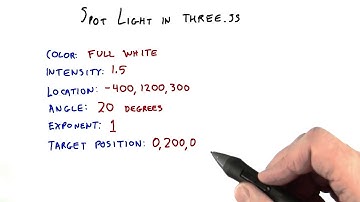 Spot Light in three.js
Color: Full White
Intensity: 1.5
Location: -400, 1200, 300
Angle: 20 degrees
Exponent: 1
Target Position: 0, 200, 0